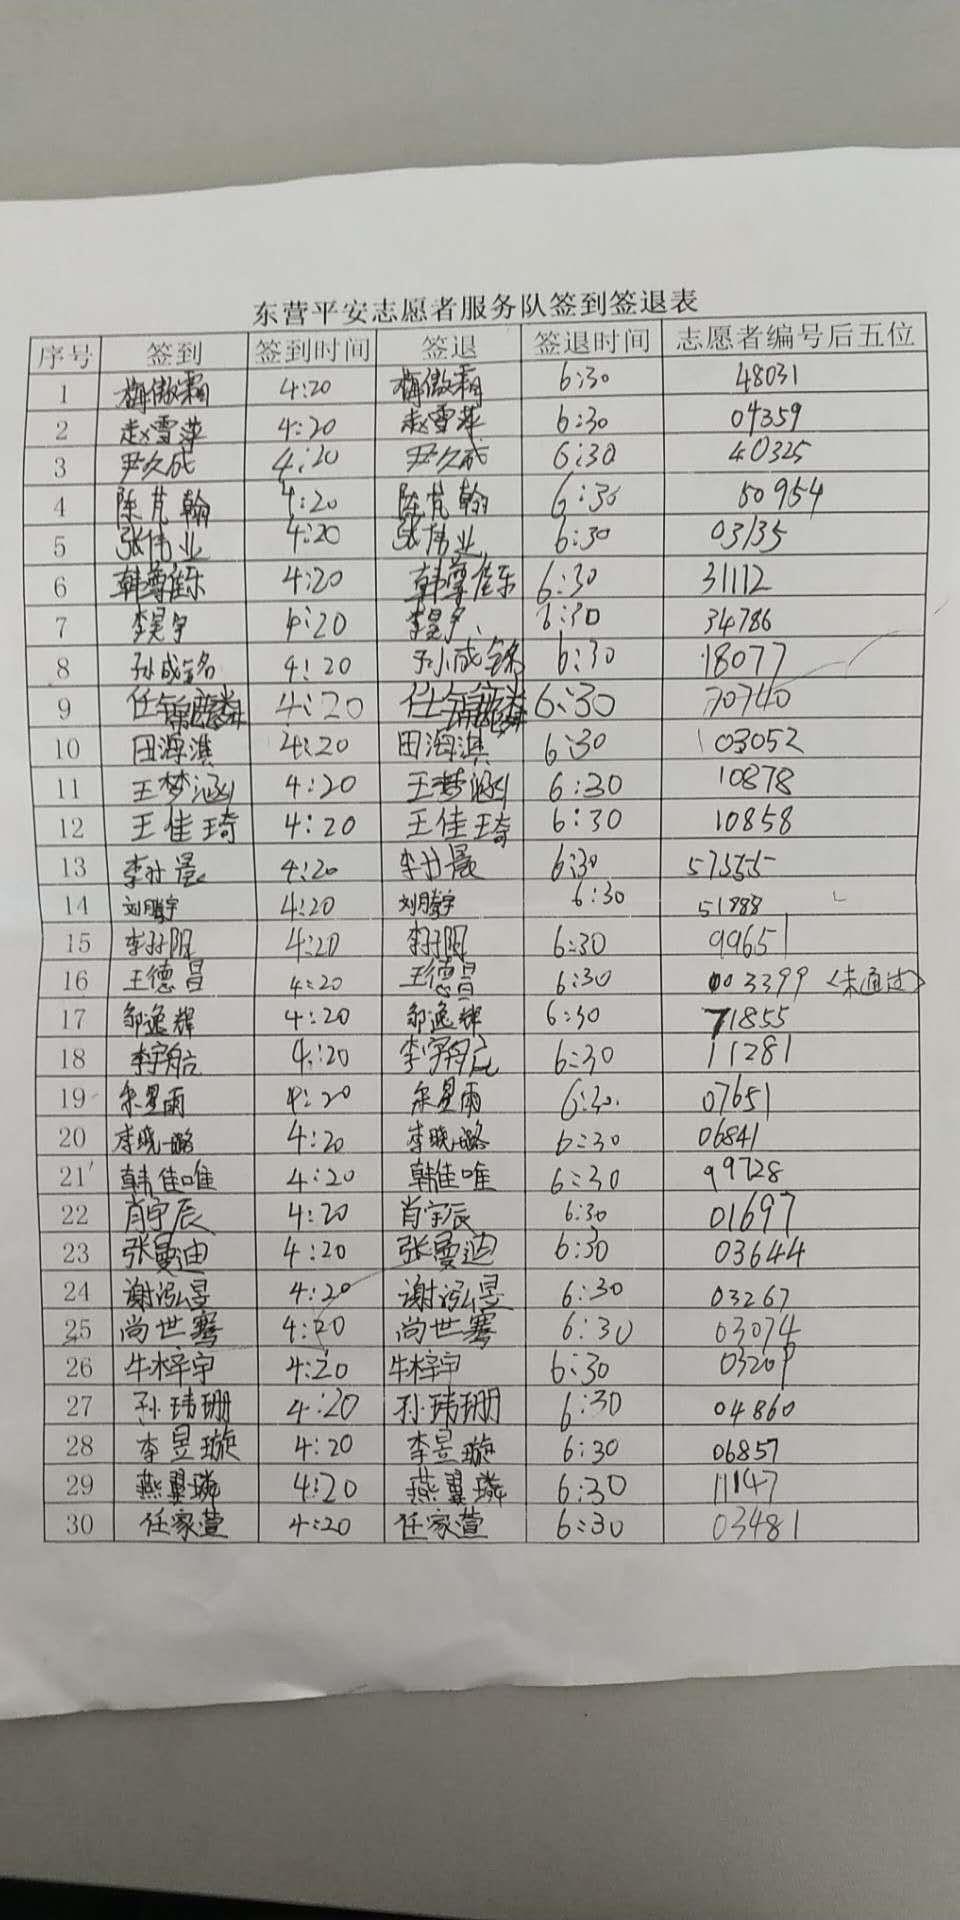 东营平安志愿者服务队签到签退表
序号 签到 签到时间 签退 签退时间 志愿者编号后五位
1 梅傲霜 4:20 梅傲霜 6:30 48031
2 赵雪萍 4:20 赵雪萍 6:30 04359
3 尹久成 4:20 尹久成 6:30 40325
4 陈芃翰 4:20 陈芃翰 6:30 50954
5 张伟业 4:20 张伟业 6:30 03135
6 韩尊佳乐 4:20 韩尊佳乐 6:30 31112
7 李昊宇 4:20 李昊宇 6:30 34786
8 孙成铭 4:20 孙成铭 6:30 18077
9 任锦麟 4:20 任锦麟 6:30 70740
10 田海淇 4:20 田海淇 6:30 103052
11 王梦涵 4:20 王梦涵 6:30 10878
12 王佳琦 4:20 王佳琦 6:30 10858
13 4:20 6:30 57355
14 刘腾宇 4:20 刘腾宇 6:30 51988
15 李子阳 4:20 李子阳 6:30 99651
16 王德昌 4:20 王德昌 6:30 003399 (未通过)
17 邹逸辉 4:20 邹逸辉 6:30 71855
18 李宇航 4:20 李宇航 6:30 11281
19 宋星雨 4:20 宋星雨 6:30 07651
20 李晓璐 4:20 李晓璐 6:30 06841
21 韩佳唯 4:20 韩佳唯 6:30 99728
22 肖宇辰 4:20 肖宇辰 6:30 01697
23 张曼迪 4:20 张曼迪 6:30 03644
24 谢泓昱 4:20 谢泓昱 6:30 03267
25 尚世骞 4:20 尚世骞 6:30 03074
26 牛梓宇 4:20 牛梓宇 6:30 03209
27 孙玮珊 4:20 孙玮珊 6:30 04860
28 李昱璇 4:20 李昱璇 6:30 06857
29 燕翼璘 4:20 燕翼璘 6:30 11147
30 任家萱 4:20 任家萱 6:30 03481